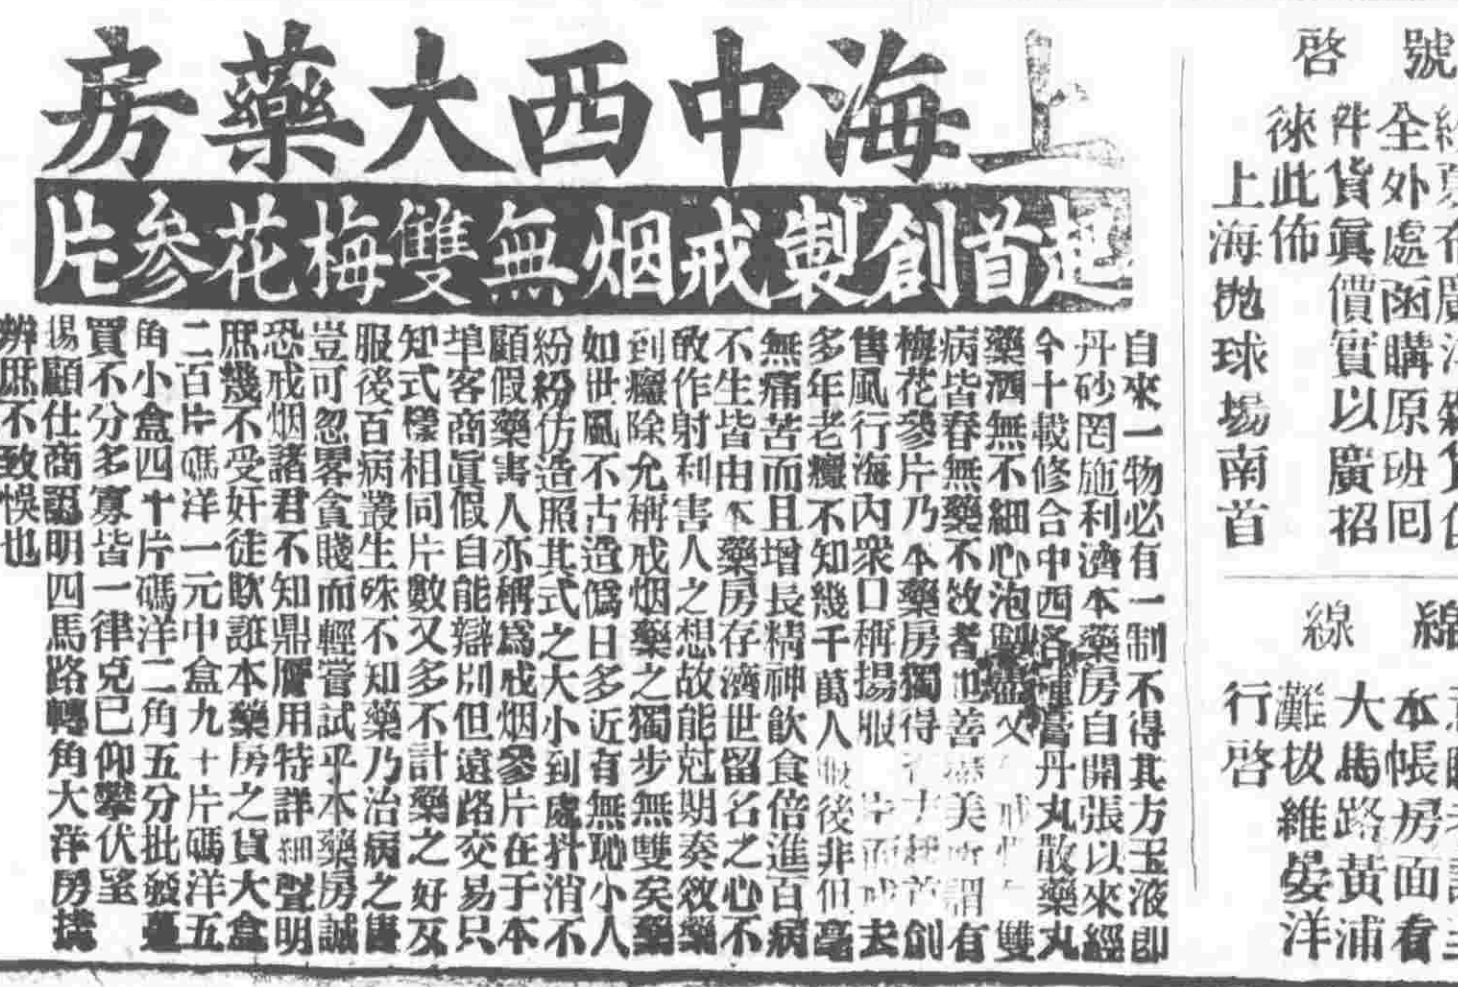 上海中西大藥房
起首創製戒烟無雙梅花參片
自來一物必有一制不得其方玉液即
丹砂罔施利濟本藥房自開張以來經
今十載修合中西各種膏丹丸散藥丸
藥酒無不細心泡製盡 雙
病皆春無藥不效者也善 美 謂有
梅花參片乃本藥房獨得 創
售風行海內衆口稱揚服 夫
多年老癮不知幾千萬人服後非但毫
無痛苦而且增長精神飲食倍進百病
不生皆由本藥房存濟世留名之心不
敢作射利害人之想故能尅期奏效藥
到癮除允稱戒烟藥之獨步無雙矣藥
如世風不古造僞日多近有無恥小人
紛紛仿造照其式之大小到處抖消不
顧假藥害人亦稱爲戒烟參片在于本
埠客商眞假自能辯別但遠路交易只
知式樣相同片數又多不計藥之好歹
服後百病叢生殊不知藥乃治病之
豈可忽畧貪賤而輕嘗試乎本藥房誠
恐戒烟諸君不知鼎贋用特詳細聲明
庶幾不受奸徒欺誑本藥房之貨大盒
二百片碼洋一元中盒九十片碼洋五
角小盒四十片碼洋二角五分批發躉
買不分多寡皆一律克已仰攀伏望
賜顧仕商認明四馬路轉角大洋房 
辨庶不致悞也
號 啓
全外處函購原班回
件貨眞價實以廣招
徠此佈
上海抛球塲南首
綿 線
本帳房面看
大馬路黃浦
灘拔維晏洋
行啓